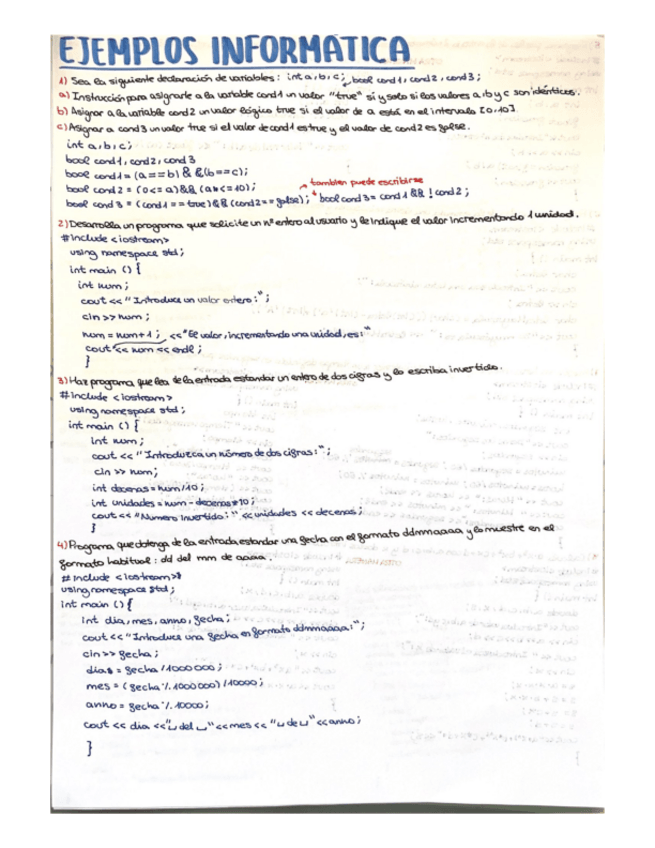 EJEMPLOS INFORMATICA
1) Sea la siguiente declaración de variables: int a, b, c; bool cond1, cond2, cond3;
a) Instrucción para asignarle a la variable cond1 un valor "true" si y solo si los valores a, b y c son idénticos.
b) Asignar a la variable cond2 un valor lógico true si el valor de a está en el intervalo [0,10]
c) Asignar a cond3 un valor true si el valor de cond1 es true y el valor de cond2 es false.
int a, b, c;
bool cond1, cond2, cond3
bool cond1 = (a == b) && (b == c);
bool cond2 = (0 <= a) && (a <= 10);
también puede escribirse
bool cond3 = (cond1 == true) && (cond2 == false); bool cond3 = cond1 && !cond2;
2) Desarrolla un programa que solicite un nº entero al usuario y le indique el valor incrementando 1 unidad.
#include <iostream>
using namespace std;
int main () {
int num;
cout << "Introduce un valor entero:";
cin >> num;
num = num + 1; << "El valor, incrementando una unidad, es:"
cout << num << endl;
}
3) Haz programa que lea de la entrada estandar un entero de dos cifras y lo escriba invertido.
#include <iostream>
using namespace std;
int main () {
int num;
cout << "Introduzca un número de dos cifras:";
cin >> num;
int decenas = num/10;
int unidades = num - decenas*10;
cout << "Numero Invertido:" << unidades << decenas;
}
4) Programa que obtenga de la entrada estandar una fecha con el formato ddmmaaaa y lo muestre en el
formato habitual: dd del mm de aaaa.
#include <iostream>
using namespace std;
int main () {
int dia, mes, anno, fecha;
cout << "Introduce una fecha en formato ddmmaaaa:";
cin >> fecha;
dia = fecha /1000000;
mes = (fecha % 1000000) /10000;
anno = fecha % 10000;
cout << dia << "␣ del ␣" << mes << "␣ de ␣" << anno;
}